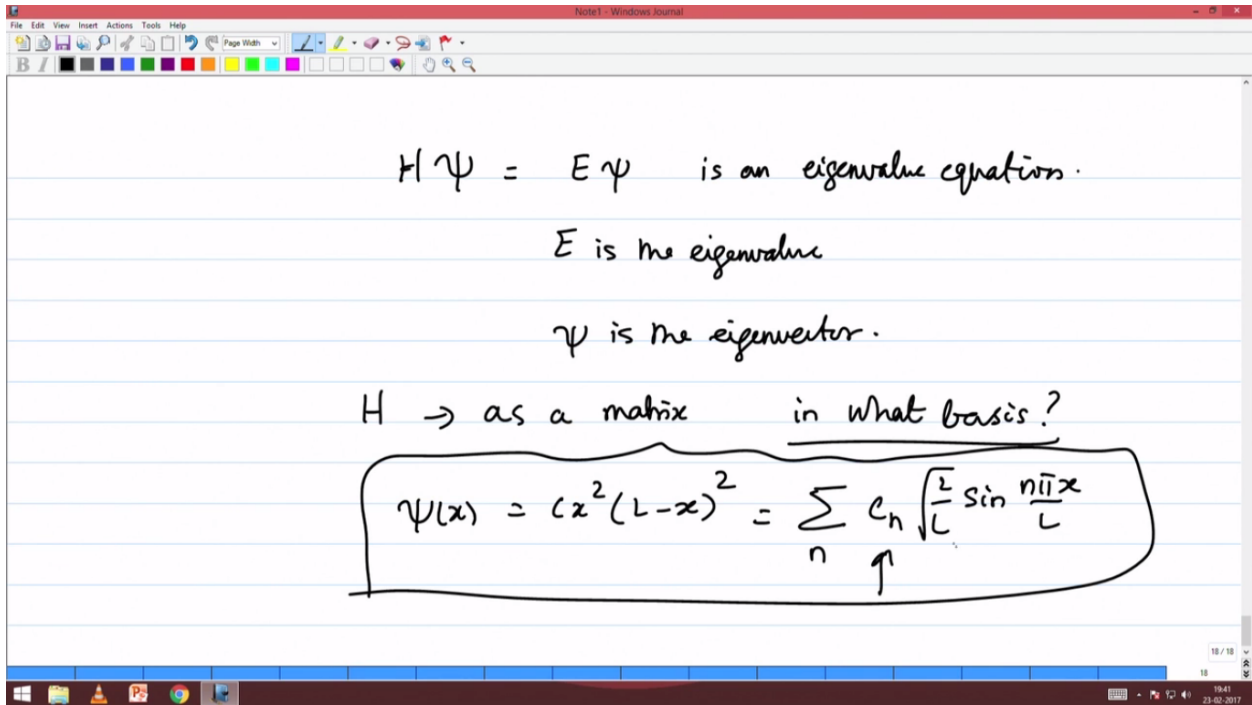 Note1 - Windows Journal
File Edit View Insert Actions Tools Help
Page Width
B I
HΨ = Eψ is an eigenvalue equation.
E is the eigenvalue
ψ is the eigenvector.
H → as a matrix in what basis?
ψ(x) = Cx²(L-x)² = ∑ₙ Cₙ √(2/L) sin nπx/L
18 / 18
18
19:41
23-02-2017